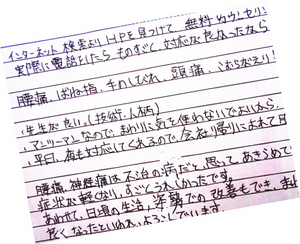 インターネット検索よりHPを見つけて、無料カウンセリン
実際に電話をしたらものすごく、対応が良くなったなら
腰痛、ばね指、手のしびれ、頭痛、こむらがえり!
先生が良い。(技術、人柄)
マンツーマンなので、まわりに気を使わないでよいから
平日、夜も対応してくれるので、会社帰りによれて日
腰痛、神経痛は不治の病だと、思って、あきらめて
症状が軽くなり、すごくうれしかったです。
あわせて、日頃の生活、姿勢での改善もでき、
良くなったといわれ、よろこんでいます。